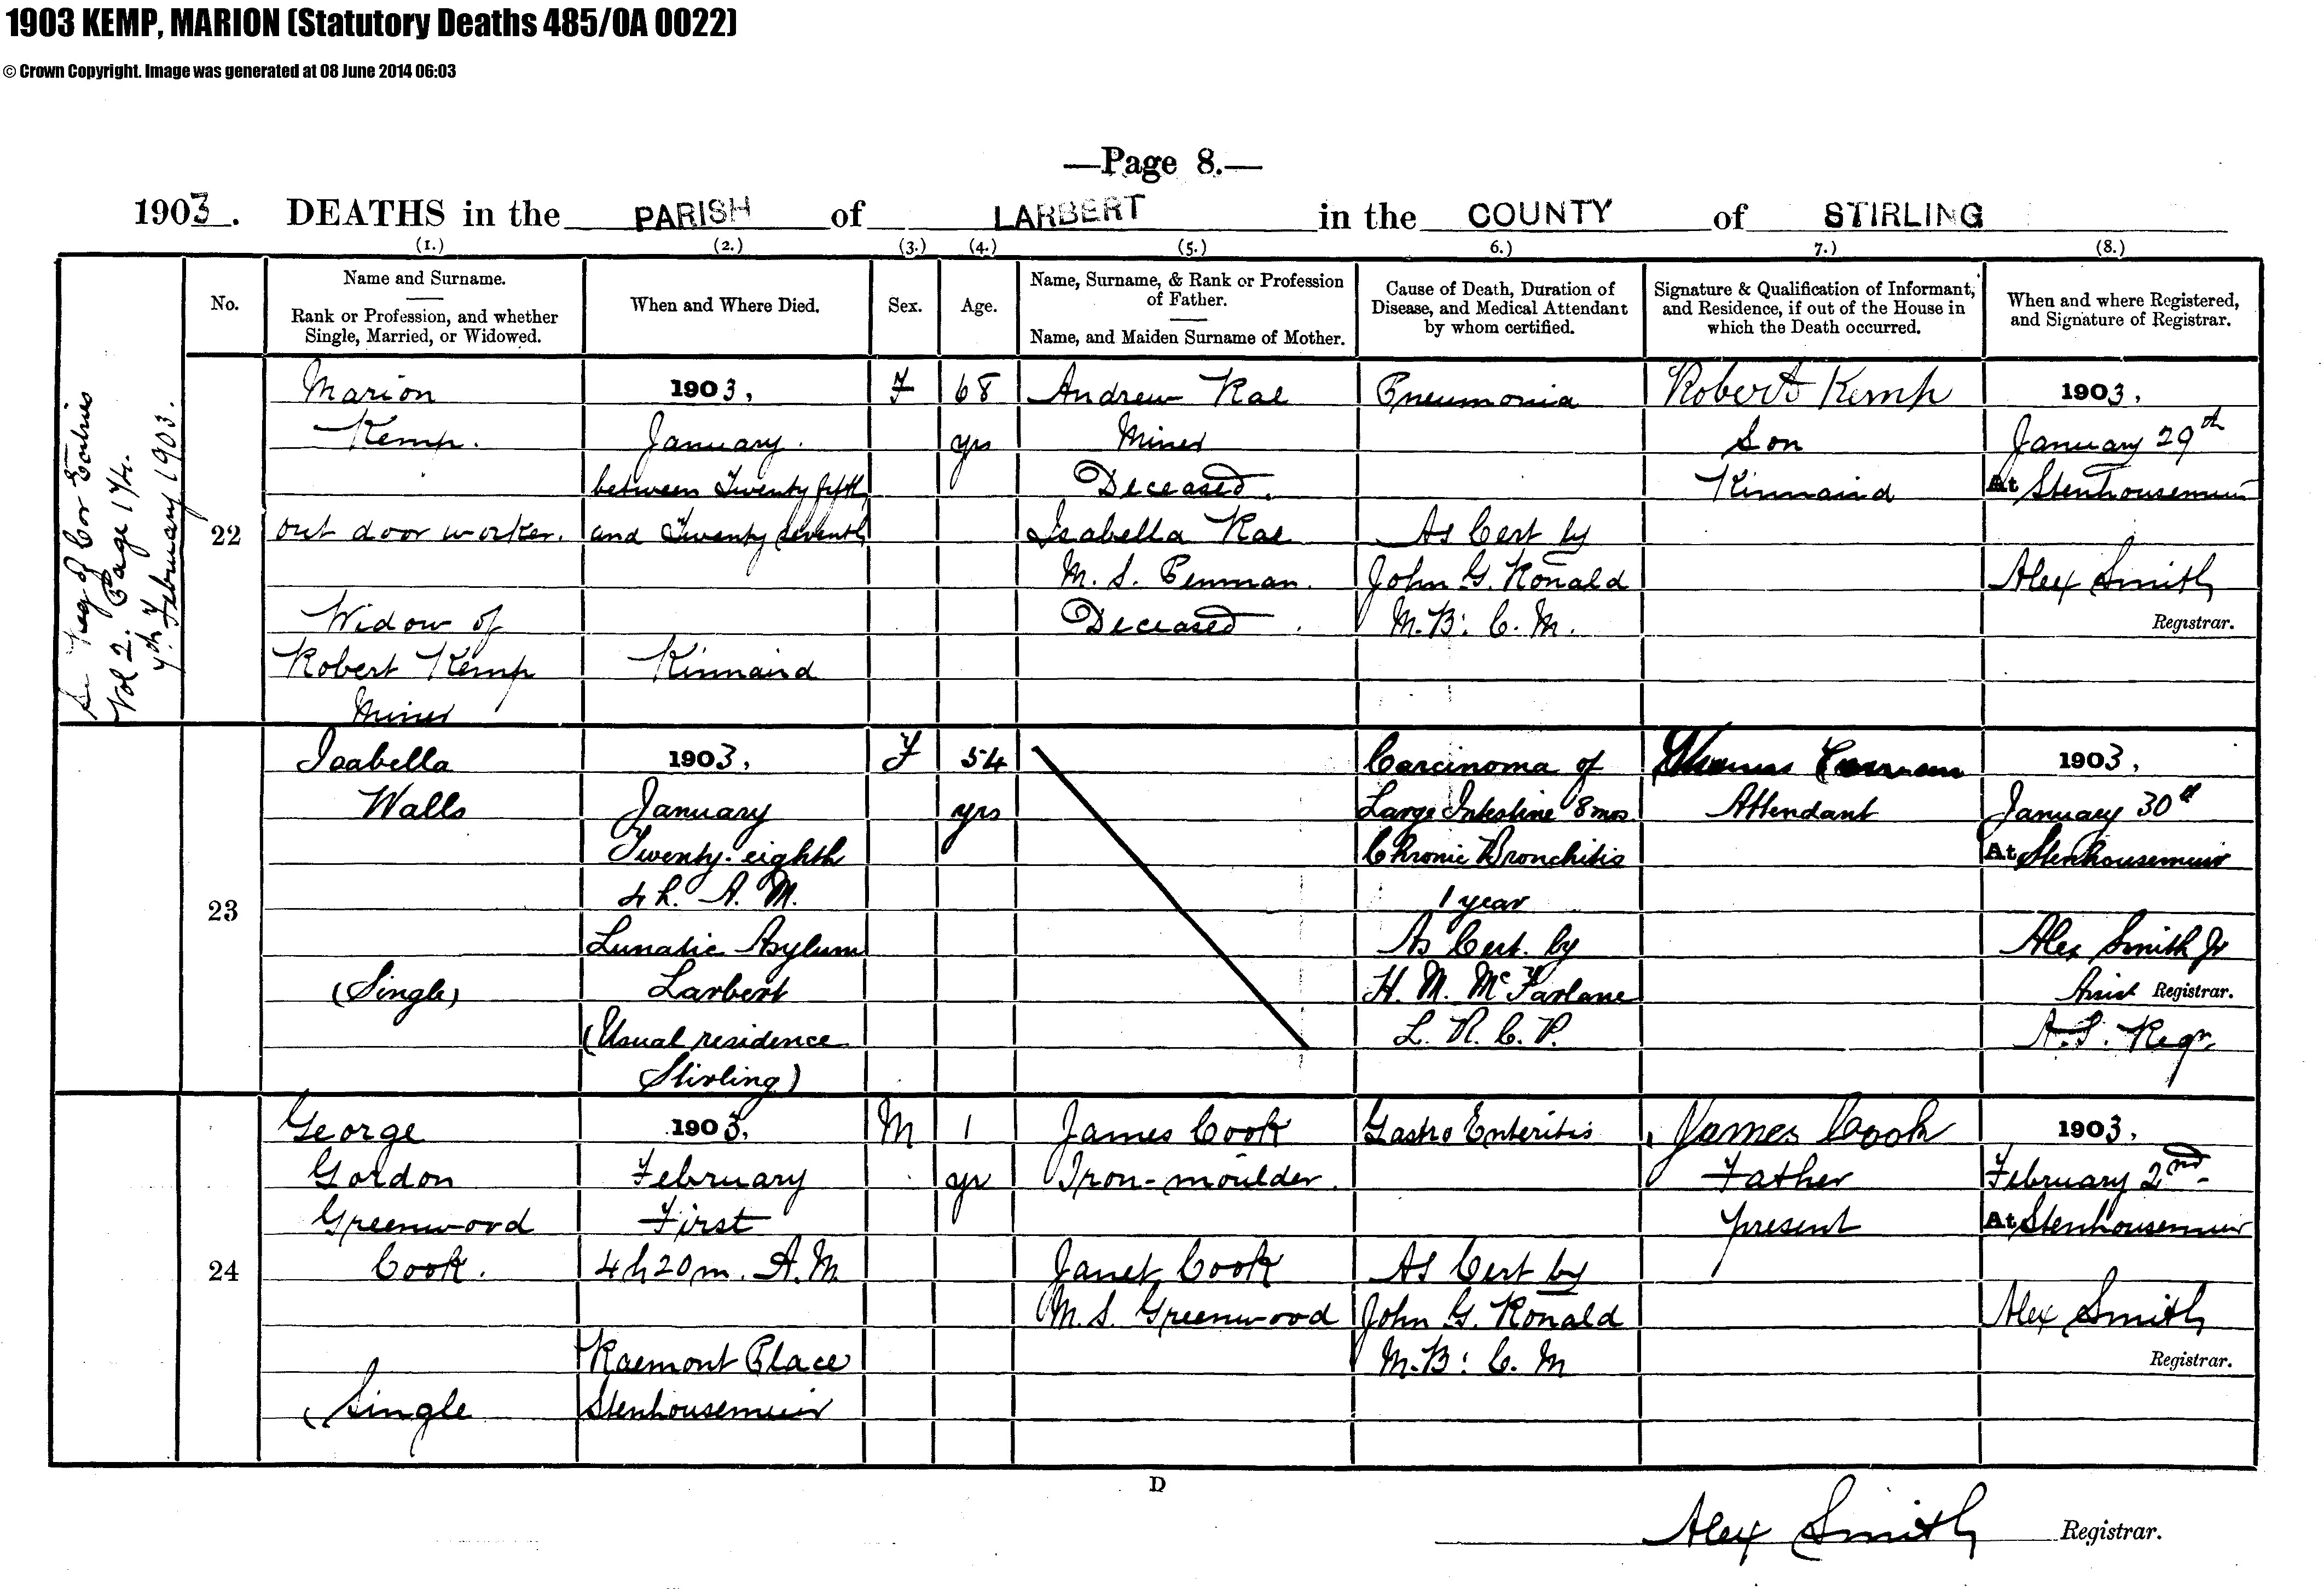 1903 KEMP, MARION (Statutory Deaths 485/0A 0022)
© Crown Copyright. Image was generated at 08 June 2014 06:03
—Page 8.—
1903. DEATHS in the PARISH of LARBERT in the COUNTY of STIRLING
(1.) (2.) (3.) (4.) (5.) 6.) 7.) (8.)
No.
Name and Surname.
Rank or Profession, and whether
Single, Married, or Widowed.
When and Where Died.
Sex.
Age.
Name, Surname, & Rank or Profession
of Father.
Name, and Maiden Surname of Mother.
Cause of Death, Duration of
Disease, and Medical Attendant
by whom certified.
Signature & Qualification of Informant,
and Residence, if out of the House in
which the Death occurred.
When and where Registered,
and Signature of Registrar.
Reg of Cor Entries
Vol 2. Page 174.
7th February 1903.
22
Marion
Kemp.
out door worker.
Widow of
Robert Kemp
Miner
1903,
January.
between Twenty fifth
and Twenty seventh
Kinnaird
F
68
yrs
Andrew Rae
Miner
Deceased.
Isabella Rae
M. S. Penman.
Deceased
Pneumonia
As Cert by
John G. Ronald
M.B: C. M.
Robert Kemp
Son
Kinnaird
1903,
January 29th
At Stenhousemuir
Alex Smith
Registrar.
23
Isabella
Walls
(Single)
1903,
January
Twenty-eighth
4 h. A. M.
Lunatic Asylum
Larbert
(Usual residence
Stirling)
F
54
yrs
Carcinoma of
Large Intestine 8 mos.
Chronic Bronchitis
1 year
As Cert. by
H. M. McFarlane
L. R. C. P.
Thomas
Attendant
1903,
January 30th
At Stenhousemuir
Alex Smith Jr
Assist Registrar.
A. S. Regr.
24
George
Gordon
Greenwood
Cook.
(Single
1903,
February
First
4 h 20 m. A. M.
Raemont Place
Stenhousemuir
M
1
yr
James Cook
Iron-moulder.
Janet Cook
M. S. Greenwood
Gastro Enteritis
As Cert by
John G. Ronald
M.B: C. M
James Cook
Father
present
1903,
February 2nd
At Stenhousemuir
Alex Smith
Registrar.
D
Alex Smith Registrar.